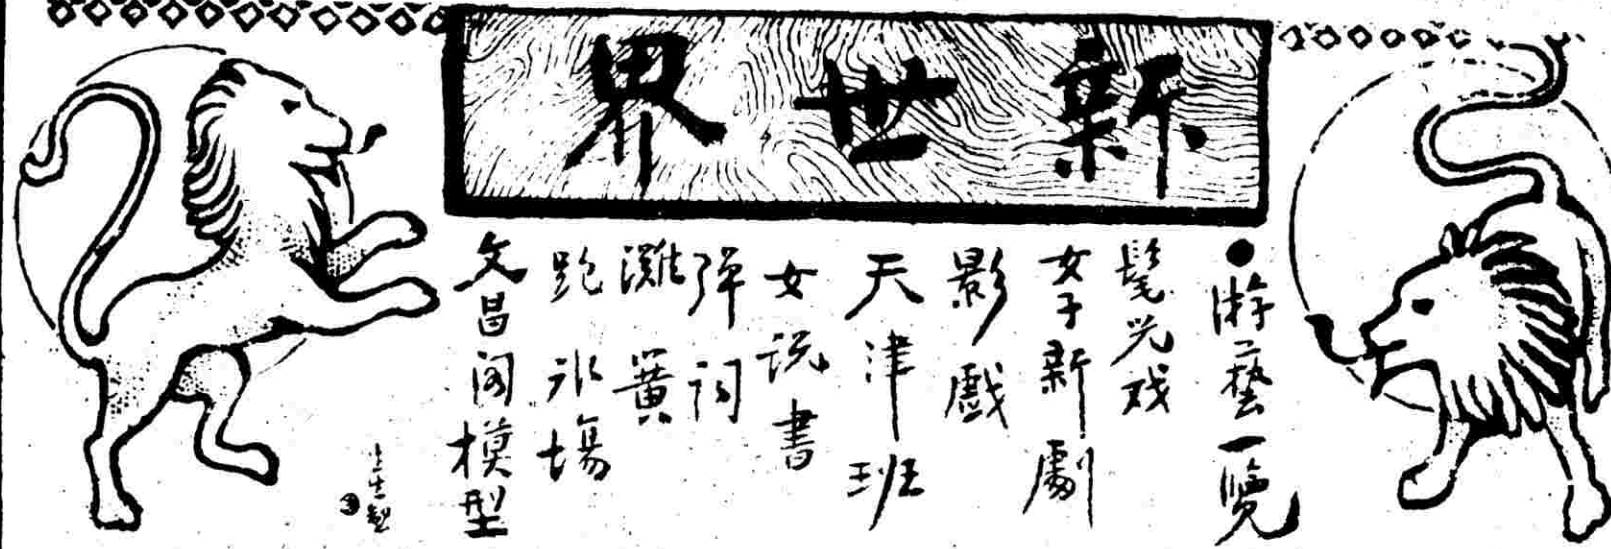 新世界
●游藝一覽
髦兒戏
女子新劇
影戲
天津班
女说書
弹词
灘簧
跑冰場
文昌阁模型